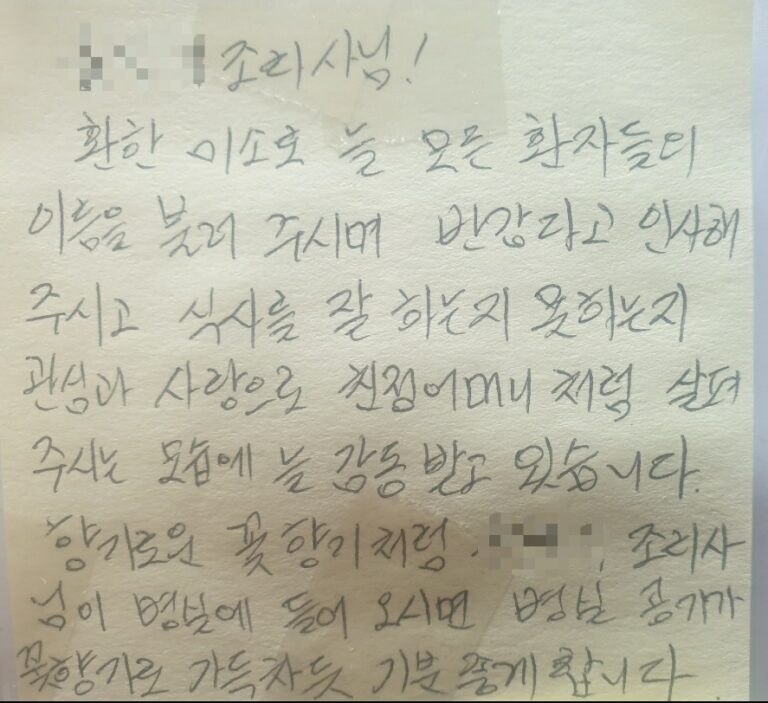 조리사님!
환한 미소로 늘 모든 환자들의
이름을 불러 주시며 반갑다고 인사해
주시고 식사를 잘 하는지 못하는지
관심과 사랑으로 친정어머니 처럼 살펴
주시는 모습에 늘 감동 받고 있습니다.
향기로운 꽃향기처럼 조리사
님이 병실에 들어 오시면 병실 공기가
꽃향기로 가득차듯 기분 좋게 합니다.